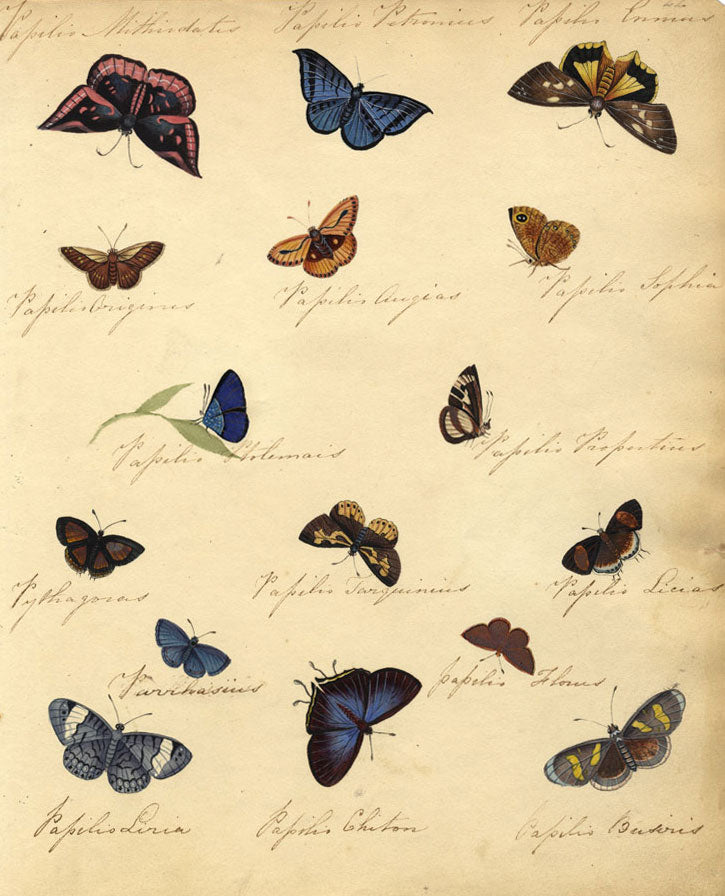 Papilio Mithridates
Papilio Petronius
Papilio Ennius
Papilio Origines
Papilio Augias
Papilio Sophia
Papilio Ptolemais
Papilio Propertius
Pythagoras
Papilio Tarquinius
Papilio Licias
Parrhasius
papilio Florus
Papilio Liria
Papilio Chiton
Papilio Busiris